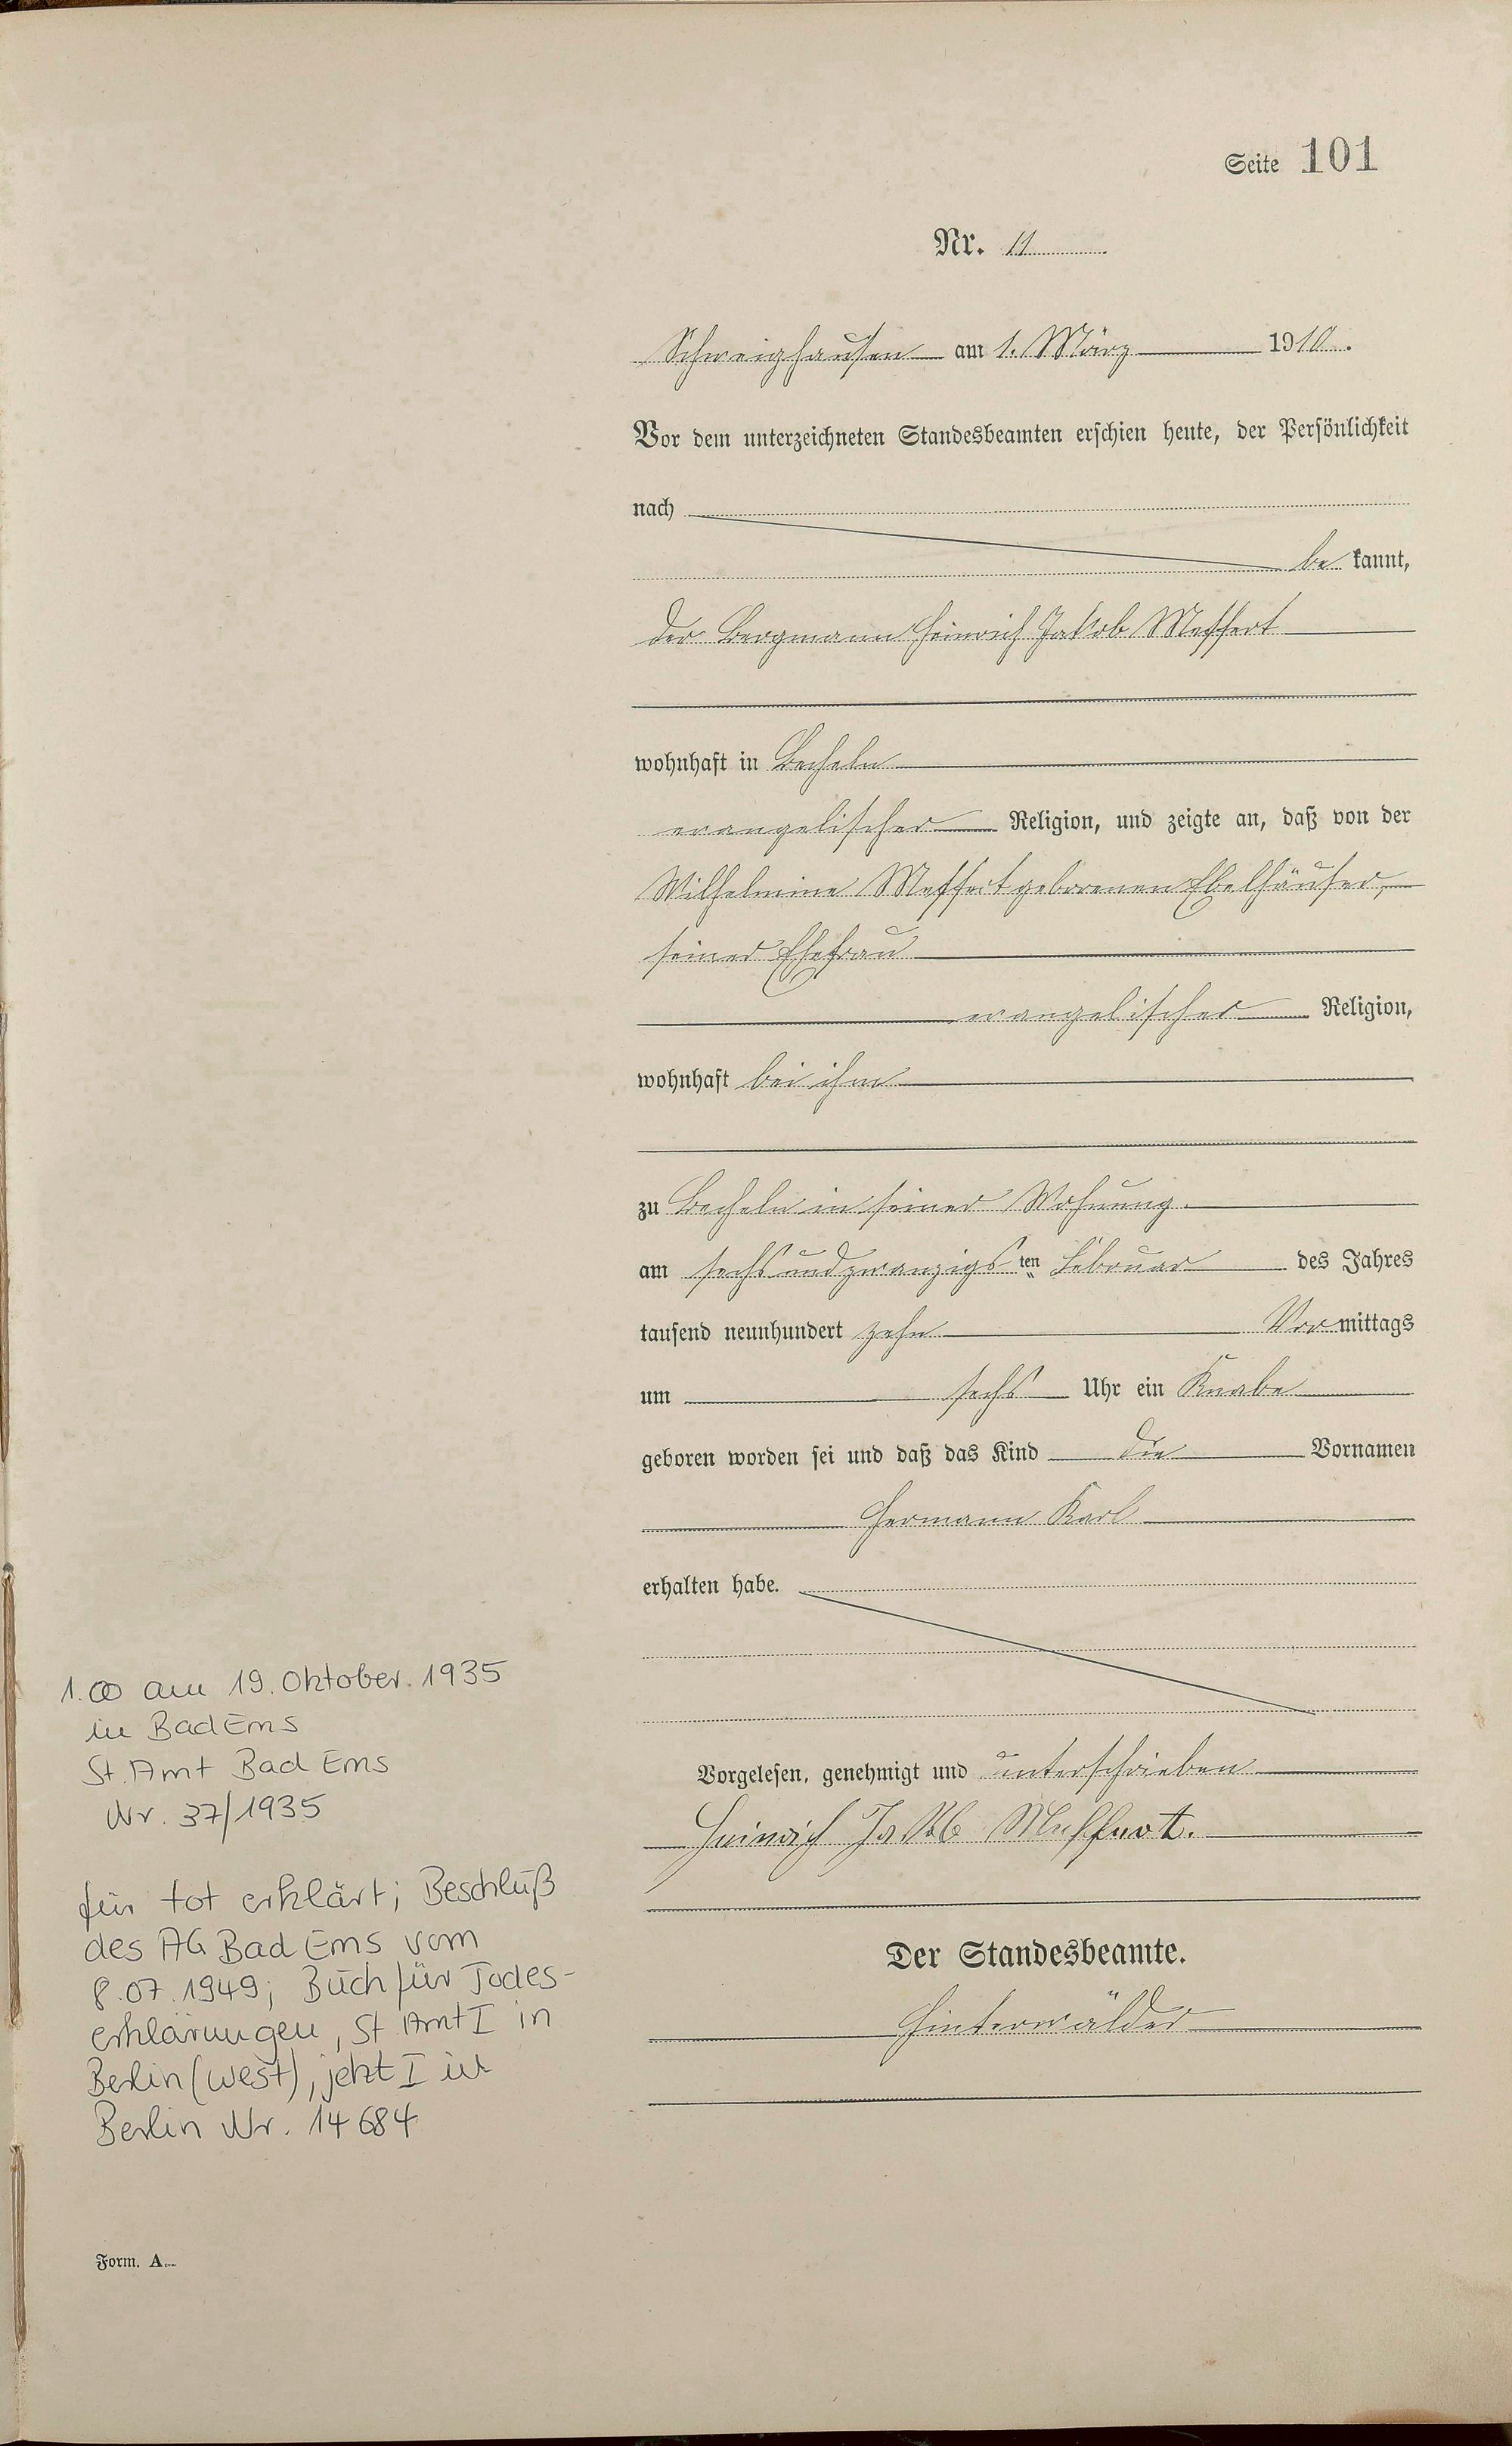 Seite 101
Nr. 11
Schweighausen am 1. März 1910.
Vor dem unterzeichneten Standesbeamten erschien heute, der Persönlichkeit
nach
be kannt,
der Bergmann Heinrich Jakob Meffert
wohnhaft in Becheln
evangelischer Religion, und zeigte an, daß von der
Wilhelmine Meffert geborenen Ebelhäuser,
seiner Ehefrau
evangelischer Religion,
wohnhaft bei ihm
zu Becheln in seiner Wohnung
am sechsundzwanzigs ten Februar des Jahres
tausend neunhundert zehn Vor mittags
um sechs Uhr ein Knabe
geboren worden sei und daß das Kind die Vornamen
Hermann Karl
erhalten habe.
Vorgelesen, genehmigt und unterschrieben
Heinrich Jakob Meffert.
Der Standesbeamte.
Hinterwälder
1. ⚭ am 19. Oktober. 1935
in Bad Ems
St. Amt Bad Ems
Nr. 37/1935
für tot erklärt; Beschluß
des AG Bad Ems vom
8.07.1949; Buch für Todes-
erklärungen, St Amt I in
Berlin (West), jetzt I in
Berlin Nr. 14 684
Form. A.